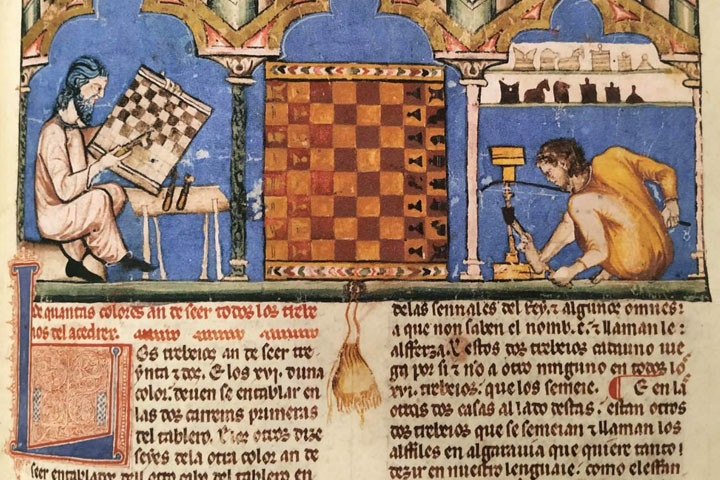 De quantas colores an de seer todos los trebe
ios del acedrex.
Los trebeios an de seer tre
ynta & dos. E los .xvi. duna
color. deuen se entablar en
las dos carreras primeras
del tablero. E los otros dize
seyes dela otra color an de
seer entablados dell otro cabo del tablero en
delas sennales del Rey. & algunos omnes
a que non saben el nombre & llaman le
alfferza. E estos dos trebeios cadauno iue
ga por si & no a otro ninguno en todos lo
.xvi. trebeios. que los semeie. ¶ E en la
otras dos casas al lado destas. estan otros
dos trebeios que se semeian & llaman los
alffiles en algarauia que quiere tanto
dezir en nuestro lenguaie. como elefan